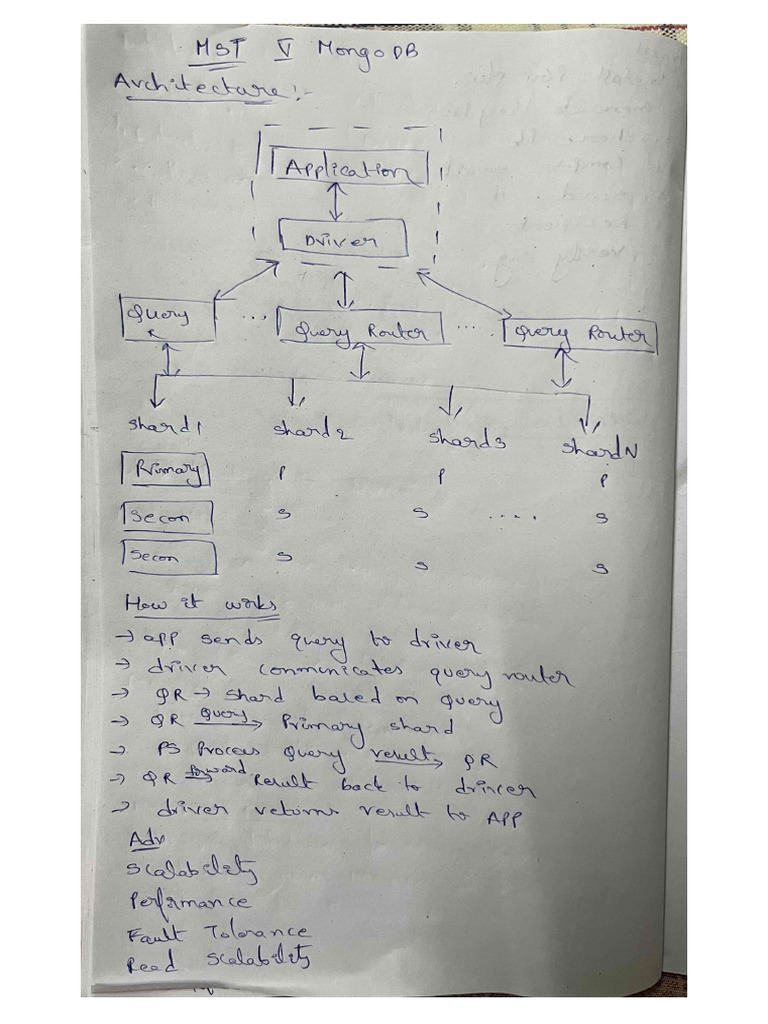 MST V MongoDB
Architecture:-
Application
Driver
Query
R
....
Query Router
.....
Query Router
shard1 shard2 shard3 shardN
Primary P P P
Secon S S .... S
Secon S S S
How it works
→ app sends query to driver
→ driver communicates query router
→ QR → shard based on query
→ QR Query→ Primary shard
→ PS Process Query result→ QR
→ QR forward→ Result back to driver
→ driver returns result to APP
Adv
Scalability
Perfrmance
Fault Tolorance
Read Scalability